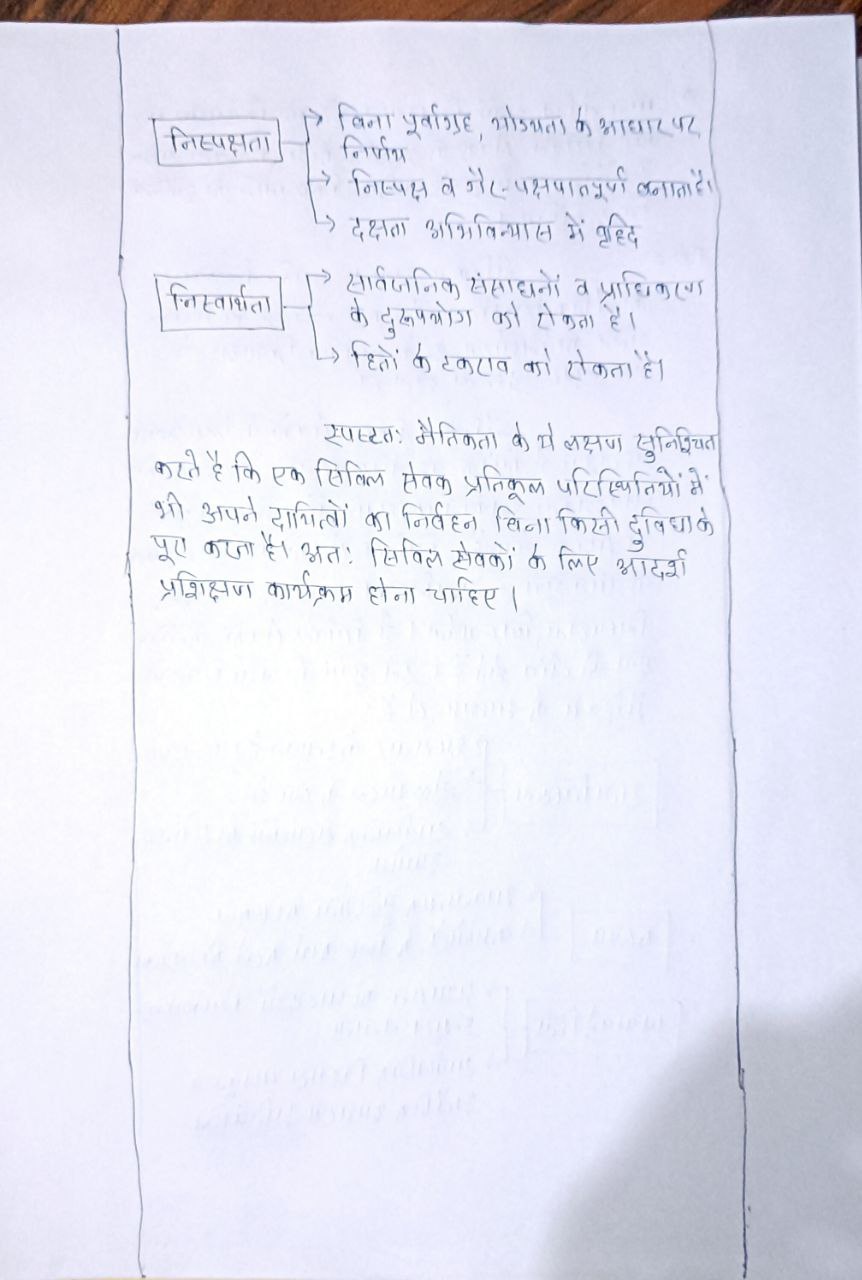 निष्पक्षता
→ बिना पूर्वाग्रह, योग्यता के आधार पर
निर्णय
→ निष्पक्ष व गैर-पक्षपातपूर्ण बनाता है।
→ दक्षता अभिविन्यास में वृद्दि
निस्वार्थता
→ सार्वजनिक संसाधनों व प्राधिकरण
के दुरूपयोग को रोकता है।
→ हितों के टकराव को रोकता है।
स्पष्टतः नैतिकता के ये लक्षण सुनिश्चित
करते है कि एक सिविल सेवक प्रतिकूल परिस्थितियों में
भी अपने दायित्वों का निर्वहन बिना किसी दुविधा के
पूरा करता है। अतः सिविल सेवकों के लिए आदर्श
प्रशिक्षण कार्यक्रम होना चाहिए।